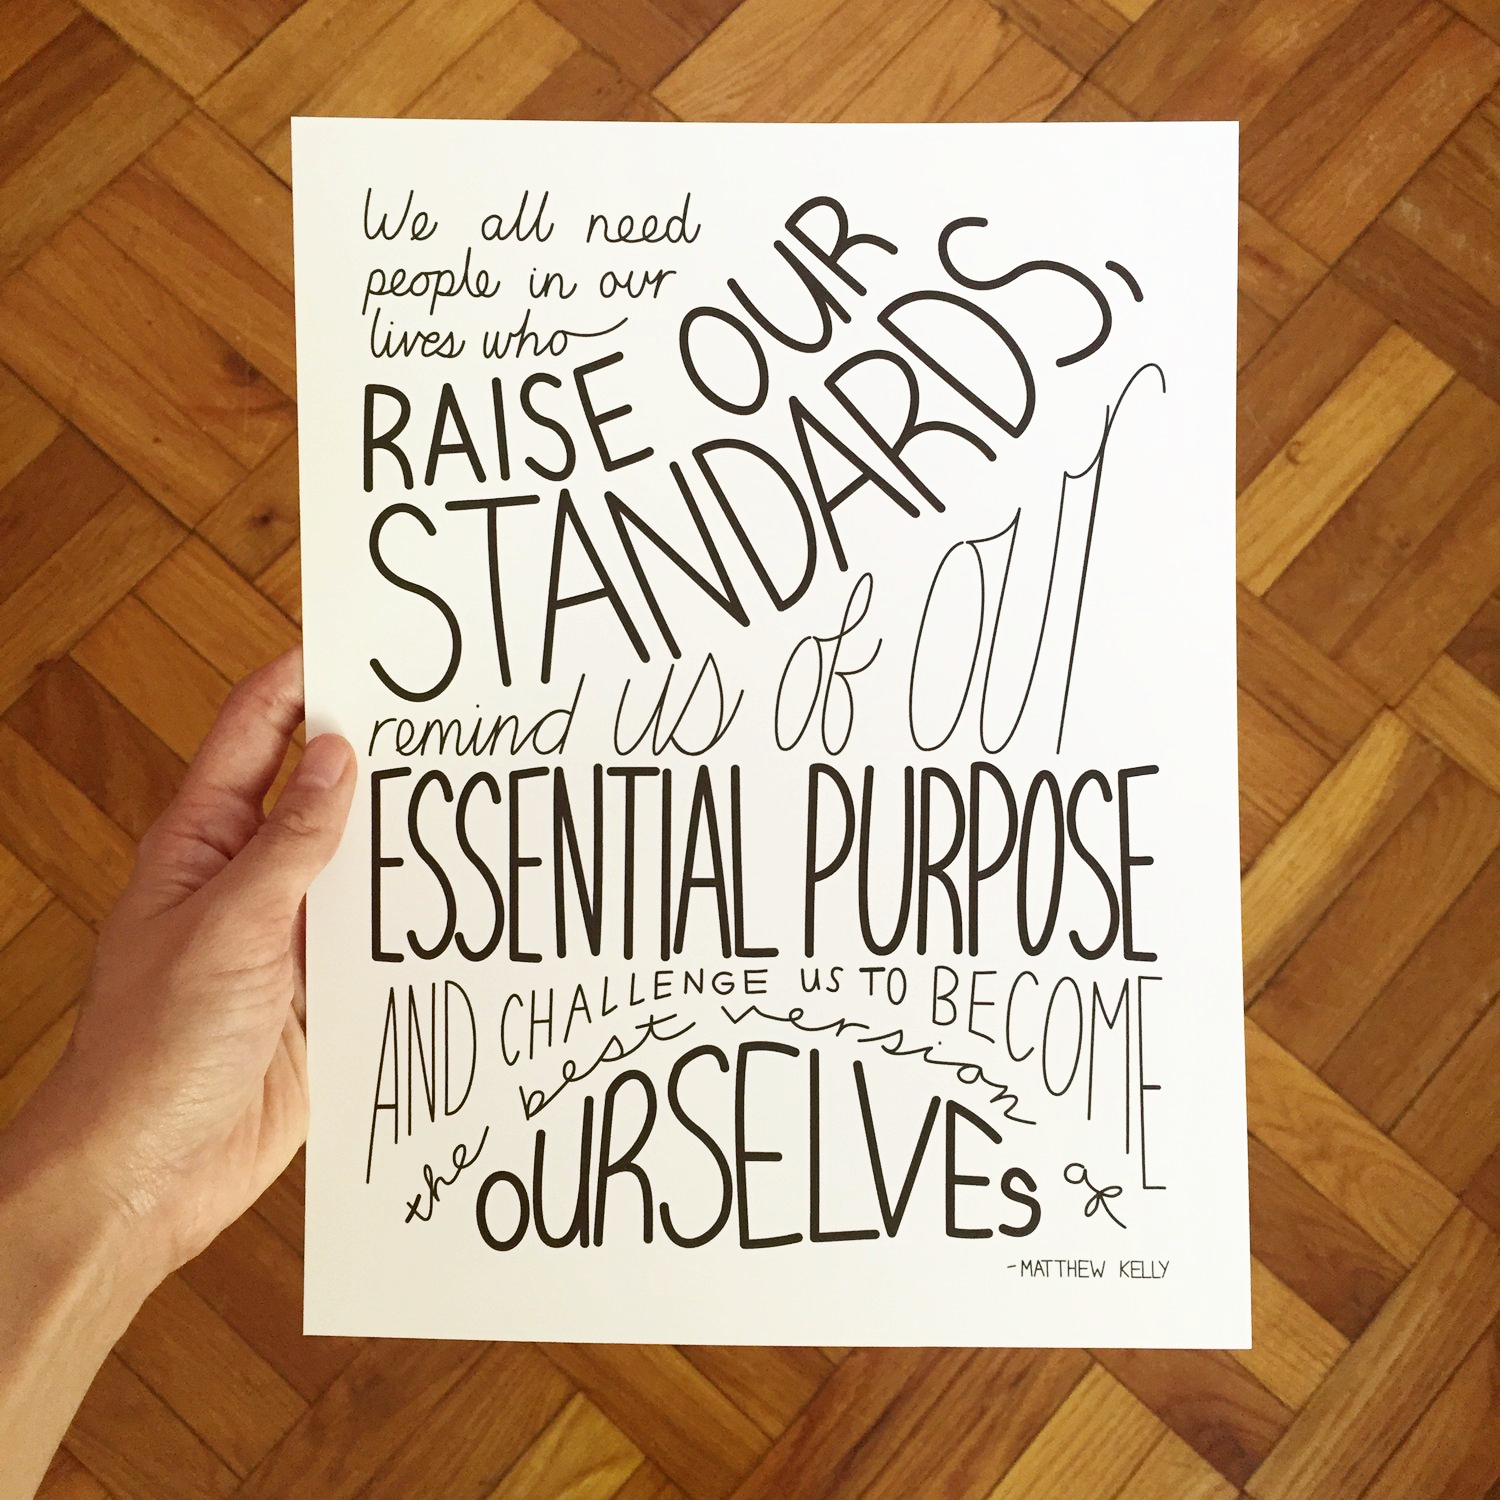 We all need
people in our
lives who
RAISE OUR
STANDARDS,
remind us of our
ESSENTIAL PURPOSE
AND CHALLENGE US TO BECOME
the best version of
OURSELVES
-MATTHEW KELLY